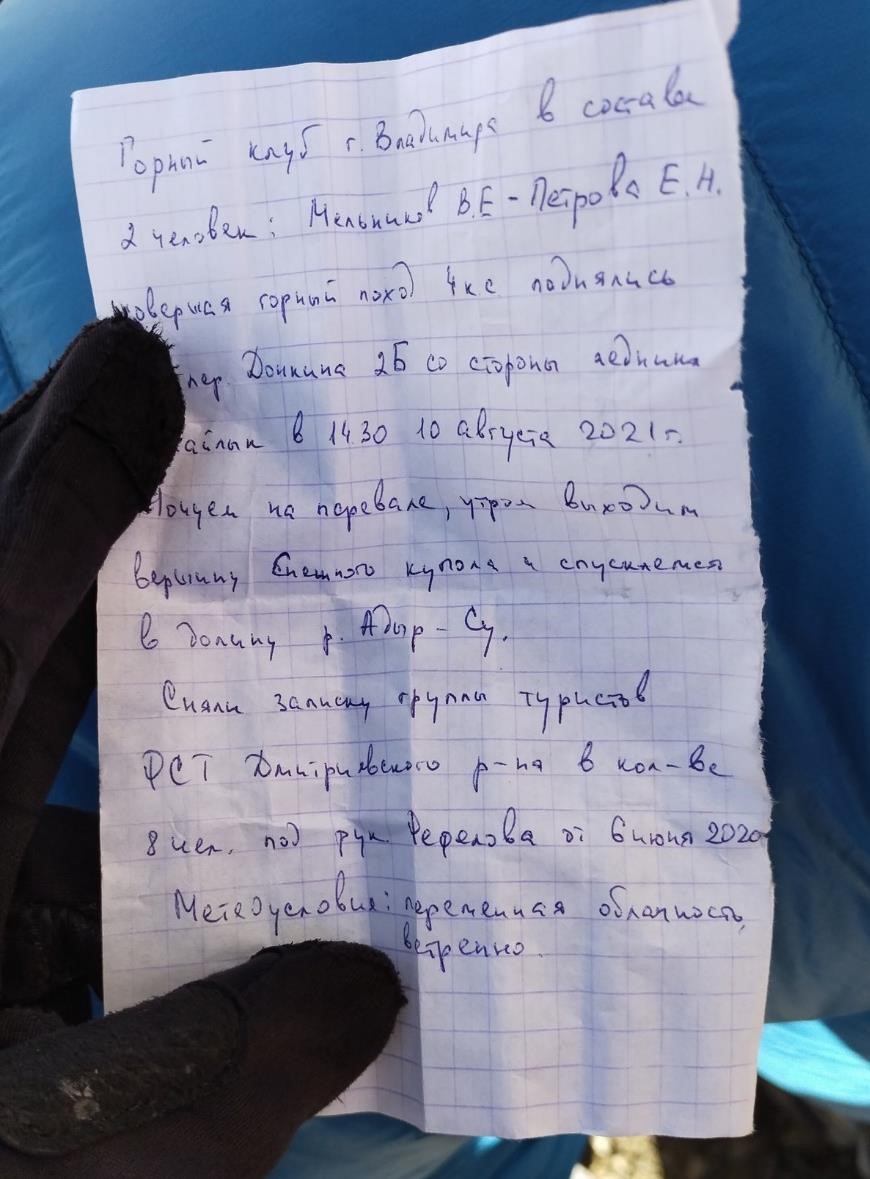 Горный клуб г. Владимира в составе
2 человек: Мельников В.Е - Петрова Е.Н.
совершая горный поход 4 к.с. поднялись
пер. Донкина 2Б со стороны ледника
айлык в 14.30 10 августа 2021 г.
Ночуем на перевале, утром выходим
вершину Снежного купола и спускаемся
в долину р. Адыр-Су.
Сняли записку группы туристов
ФСТ Дмитриевского р-на в кол-ве
8 чел. под рук. от 6 июня 2020
Метеоусловия: переменная облачность,
ветренно.